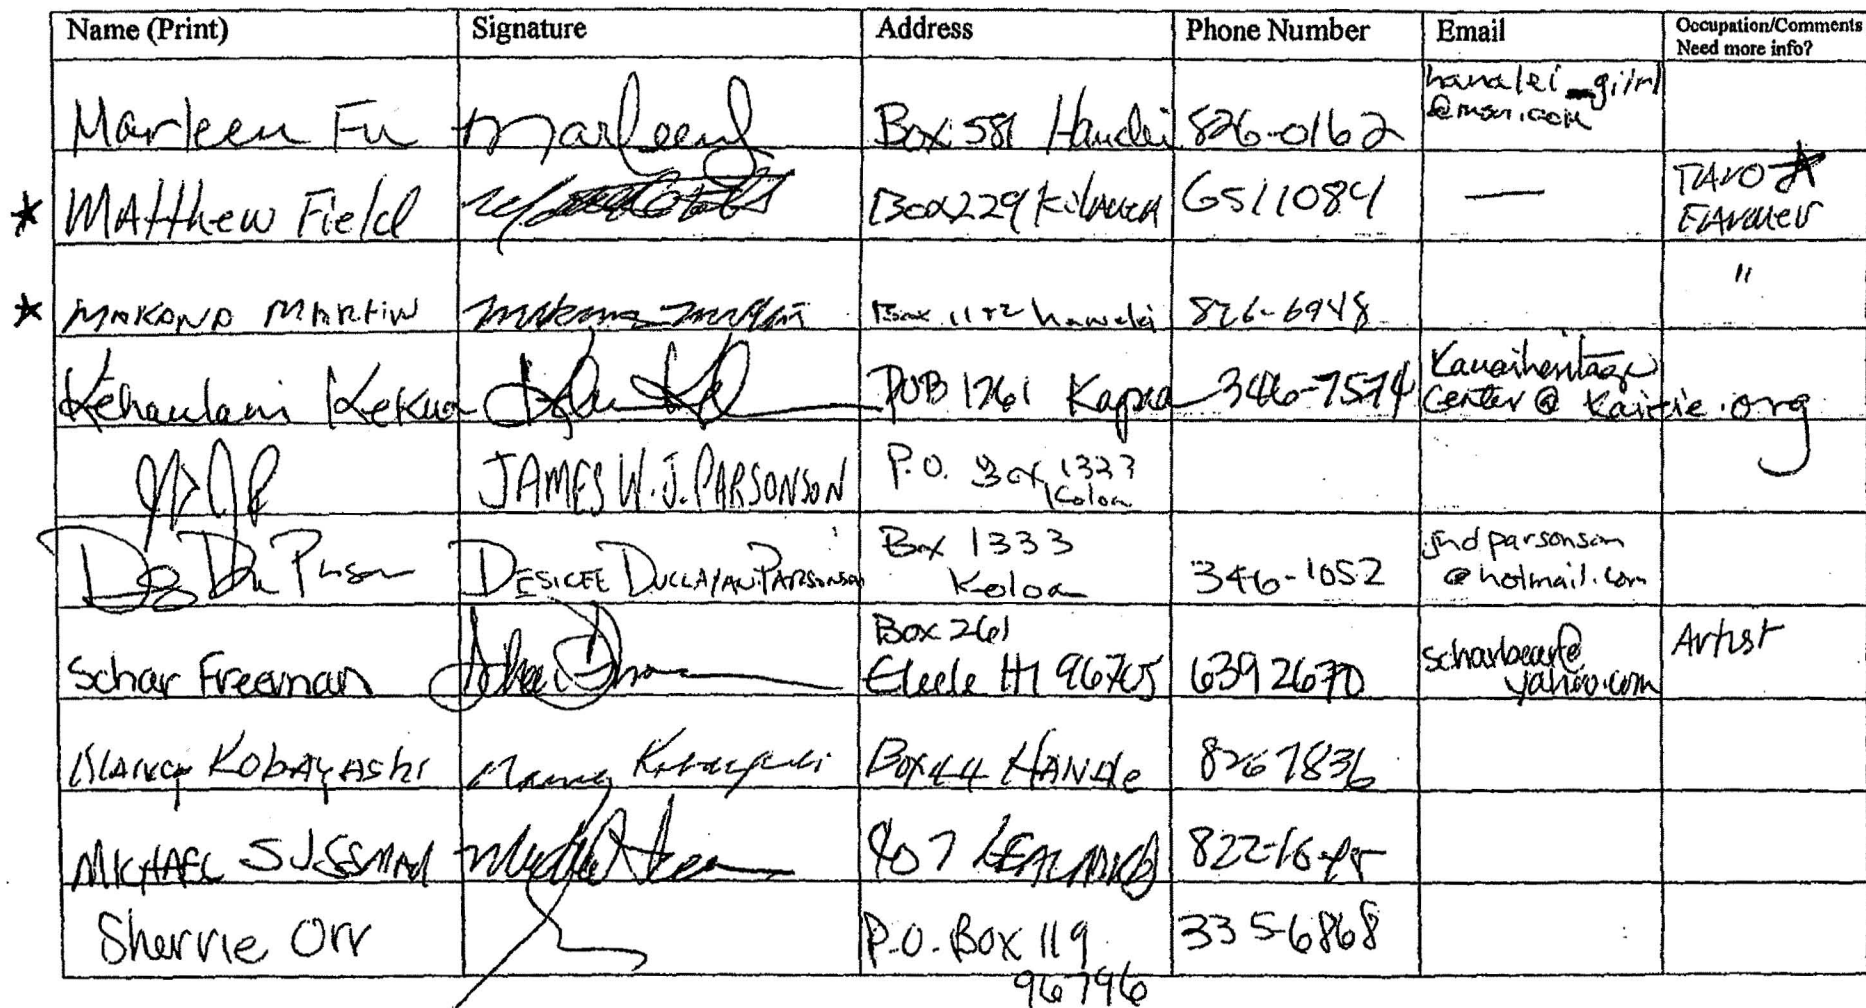 Name (Print) Signature Address Phone Number Email Occupation/Comments
Need more info?
Marleen Fu Box 581 Hanalei 826-0162
@msn.com
* MAtthew Field Box 229 Kilauea 6511084 — TARO
FARMER
* MAKANA MARTIN Makana Martin Box 1182 hanalei 826-6948 "
Kehaulani Kekua POB 1761 Kapaa 346-7574 Kauaiheritage
Center@ .org
JAMES W.J. PARSONSON P.O. Box 1333
Koloa
DESIREE DUCLAYAN-PARSONSON Box 1333
Koloa 346-1052 jndparsonson
@hotmail.com
Schar Freeman Box 261
Eleele HI 96705 6392670 scharbear@
yahoo.com Artist
Nancy Kobayashi Nancy Kobayashi Box 44 8267836
MICHAEL SUSSMAN 407 822-16
Sherrie Orr P.O. Box 119 335-6868
96796